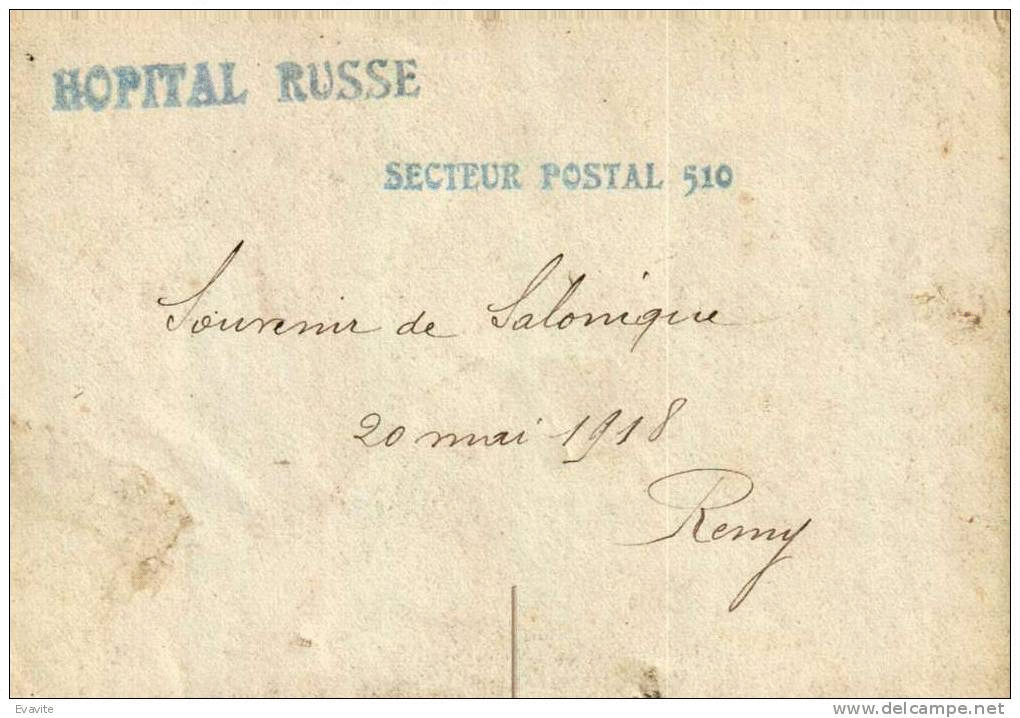 HOPITAL RUSSE
SECTEUR POSTAL 510
Souvenir de Salonique
20 mai 1918
Remy
Evavite
www.delcampe.net